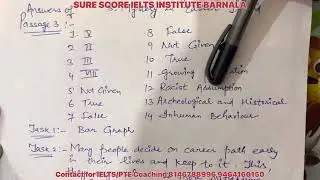 SURE SCORE IELTS INSTITUTE BARNALA
Answers of
Passage 3 :-
1. V
2. II
3. III
4. VIII
5 Not Given
6 True
7 False
8 False
9 Not Given
10 True
11 Growing
12 Racist Assumption
13 Archeological and Historical
14 Inhuman Behaviour
Task 1 :- Bar Graph
Task 2 :- Many people decide on career path early
in their lives and keep to it. This,
Contact for IELTS/PTE Coaching 8146788996,9464160150